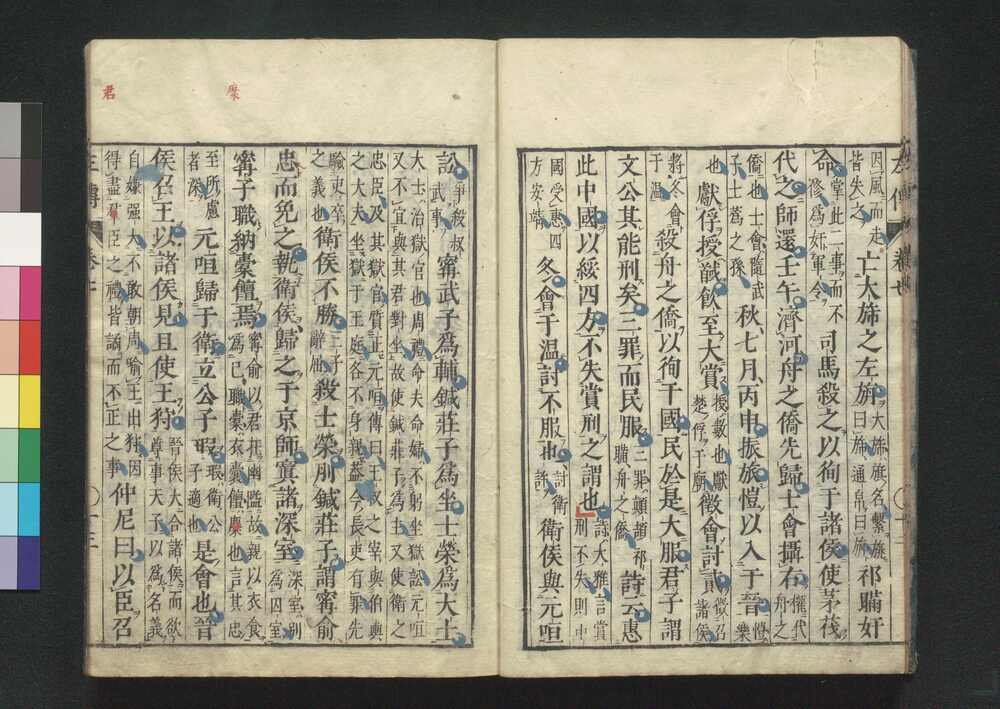 因風而走皆失之亡大旆之左旃大旆旗名繫旐曰旆通帛曰旃祁瞞奸
命掌此二事而不修爲奸軍令司馬殺之以徇于諸侯使茅茷
代之師還壬午濟河舟之僑先歸士會攝右權代舟之
僑也士會隨武子士蒍之孫秋七月丙申振旅愷以入于晉愷樂
也獻俘授馘飲至大賞授數也獻楚俘于廟徵會討貳徵召諸侯
將冬會于温殺舟之僑以徇于國民於是大服君子謂
文公其能刑矣三罪而民服三罪顛頡祁瞞舟之僑詩云惠
此中國以綏四方不失賞刑之謂也詩大雅言賞刑不失則中
國受惠四方安靖冬會于温討不服也討衛許衛侯與元咺
訟爭殺叔武事甯武子爲輔鍼莊子爲坐士榮爲大士
大士治獄官也周禮命夫命婦不躬坐獄訟元咺又不宜與其君對坐故使鍼莊子爲主又使衛之
忠臣及其獄官質正元咺傳曰王叔之宰與伯輿之大夫坐獄于王庭各不身親蓋今長吏有罪先
驗吏卒之義也衛侯不勝三子辭屈殺士榮刖鍼莊子謂甯俞
忠而免之執衛侯歸之于京師寘諸深室深室別爲囚室
甯子職納橐饘焉甯俞以君在幽隘故親以衣食爲己職橐衣囊饘麋也言其忠
至所慮者深元咺歸于衛立公子瑕瑕衛公子適也是會也晉
侯召王以諸侯見且使王狩晉侯大合諸侯而欲尊事天子以爲名義
自嫌强大不敢朝周喻王出狩因得盡君臣之禮皆譎而不正之事仲尼曰以臣召
糜
君